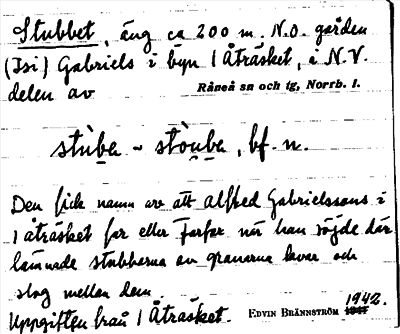 Stubbet, äng ca 200 m. N.O. gården
(Isi) Gabriels i byn 1 Åträsket, i N.V.
delen av
Råneå sn och tg, Norrb. l.
stùba ~ stòuba, bf. n.
Den fick namn av att Alfred Gabrielssons i
1 åträsket far eller Farfar när han röjde där
lämnade stubbarna av granarna kvar och
slog mellan dem
Uppgiften från 1 Åträsket.
EDVIN BRÄNNSTRÖM 1942.